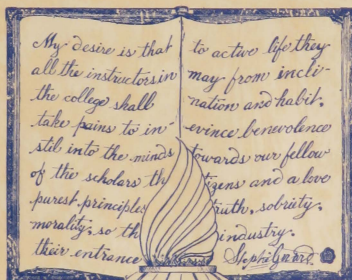 My desire is that
all the instructors in
the college shall
take pains to in-
stil into the minds
of the scholars the
purest principles
morality, so th
their entrance
to active life they
may from incli-
nation and habit,
evince benevolence
towards our fellow
tizens and a love
truth, sobriety,
industry.
Steph Girard